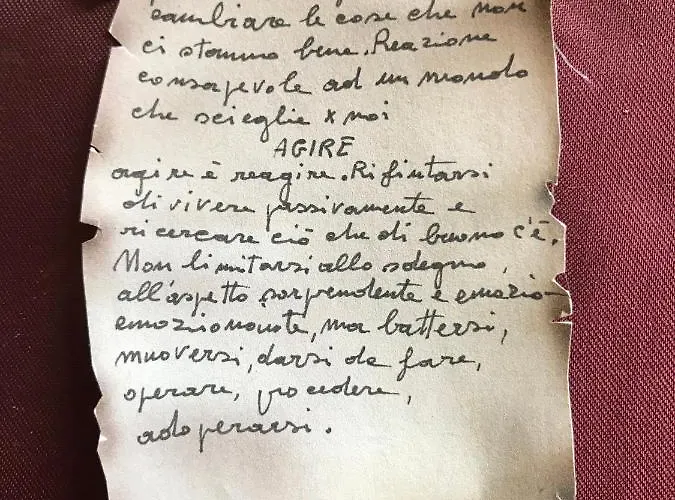 cambiare le cose che non
ci stanno bene. Reazione
consapevole ad un mondo
che scieglie x noi
AGIRE
agire è reagire. Rifiutarsi
di vivere passivamente e
ricercare ciò che di buono c'è.
Non limitarsi allo sdegno,
all'aspetto sorprendente e emozio-
emozionante, ma battersi,
muoversi, darsi da fare,
operare, procedere,
adoperarsi.